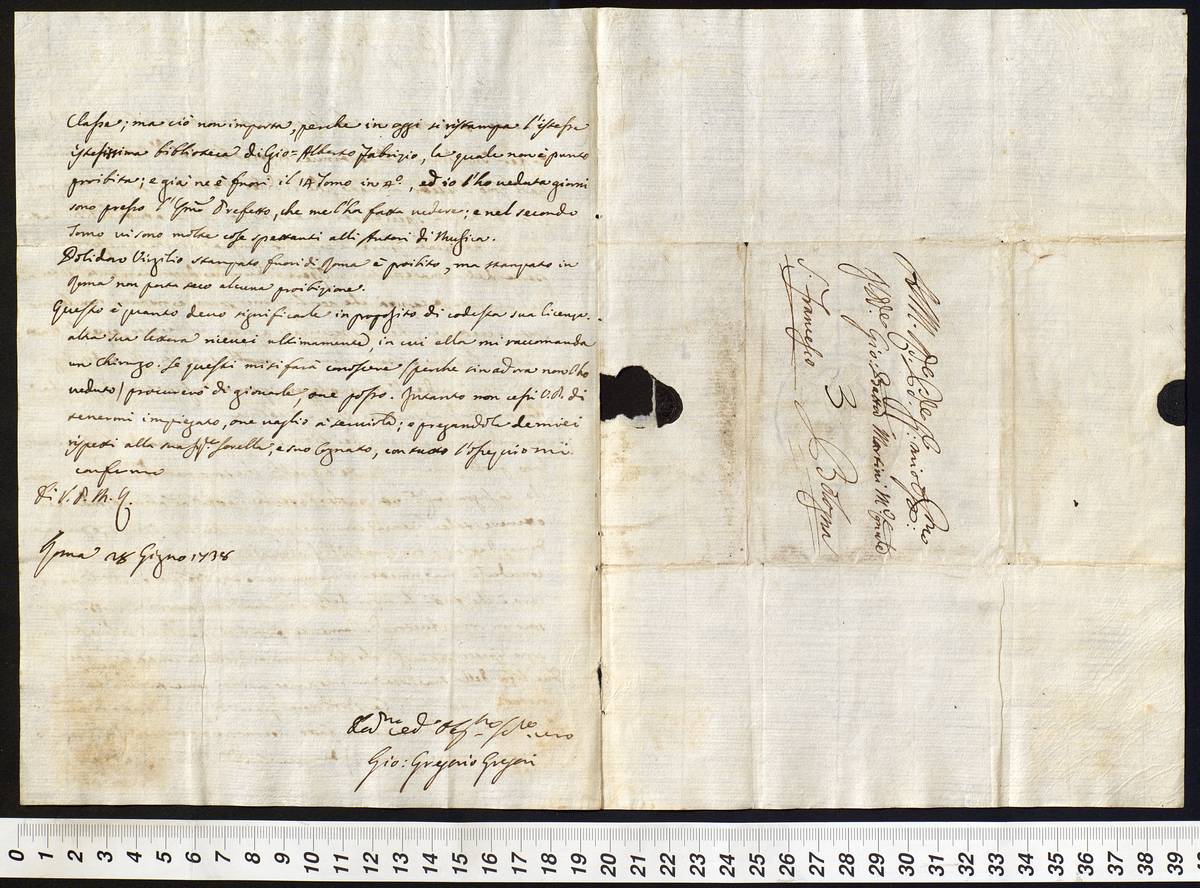 Classe; ma ciò non importa, perche in oggi si ristampa l'istessa
istessissima biblioteca di Gio= Alberto Fabrizio, la quale non è punto
proibita; e già ne è fuori il 14 Tomo in 4.º, ed io l'ho veduta giorni
sono presso Prefetto, che me l'ha fatta vedere; e nel secondo
Tomo vi sono molte cose spettanti alli Autori di Musica.
Polidoro Virgilio stampato fuori di Roma è proibito, ma stampato in
Roma non porta seco alcuna proibizione.
Questo è quanto devo significarle in proposito di codesta sua licenza.
altra sua lettera ricevei ultimamente, in cui ella mi raccomanda
un Chirurgo. Se questi mi si farà conoscere (perche sin ad ora non l'ho
veduto) procurerò di giovarle, ove posso. Intanto non cessi V.P. di
tenermi impiegato, ove vaglio a servirla; e pregandola de miei
rispetti alla sua Sig.ª Sorella, e suo Cognato, con tutto l'ossequio mi
confermo
Di V. P. M. R.
Roma 28 Giugno 1738
Gio: Gregorio Gregori
P'dre Gio: Batta Martini
S. Francesco
3
Bologna
0 1 2 3 4 5 6 7 8 9 10 11 12 13 14 15 16 17 18 19 20 21 22 23 24 25 26 27 28 29 30 31 32 33 34 35 36 37 38 39